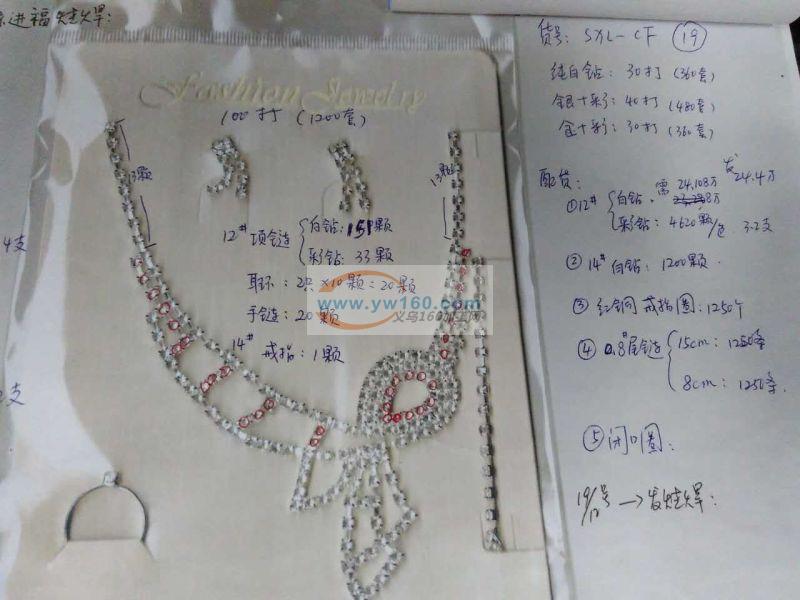 进福烛焊:
Fashion Jewelry
100打 (1200套)
13颗
13颗
12# 项链 白钻: 151颗
彩钻: 33颗
耳环: 2只×10颗=20颗
手链: 20颗
14# 戒指: 1颗
www.yw160.com
义乌160加工网
4支
支
货号: SXL-CF (19)
纯白钻: 30打 (360套)
银+彩: 40打 (480套)
金+彩: 30打 (360套)
配货:
①12# 白钻: 需 24.108万 发24.4万
彩钻: 4620颗/色 3.2支
② 14# 白钻: 1200颗.
③ 红铜 戒指圈: 1250个
④ 0.8#尾链 15cm: 1250条
8cm: 1250条.
⑤ 闭口圈:
19/12号 → 发烛焊: